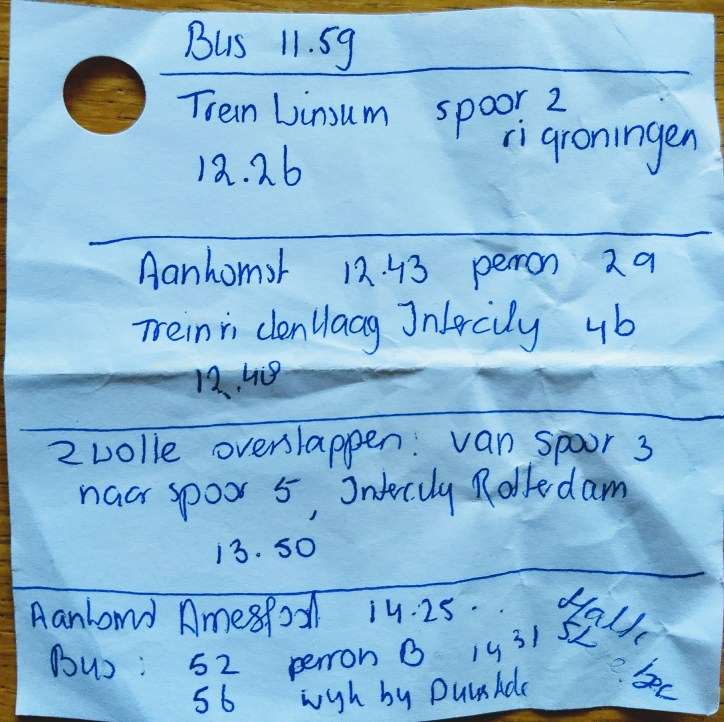 Bus 11.59
Trein Winsum spoor 2
ri groningen
12.26
Aankomst 12.43 perron 2a
Trein ri den Haag Intercity 4b
12.48
Zwolle overstappen: van spoor 3
naar spoor 5, Intercity Rotterdam
13.50
Aankomst Amersfoort 14.25
Bus: 52 perron B 14 31
56 wijk by Duurstede
Halte